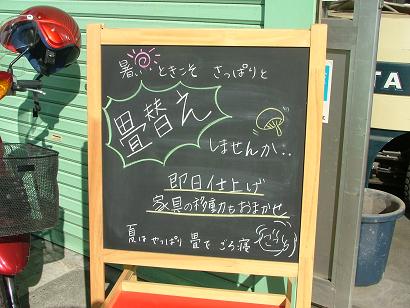 暑いときこそ さっぱりと
畳替え
しませんか..
即日仕上げ
家具の移動もおまかせ
夏はやっぱり 畳で ごろ寝
TA